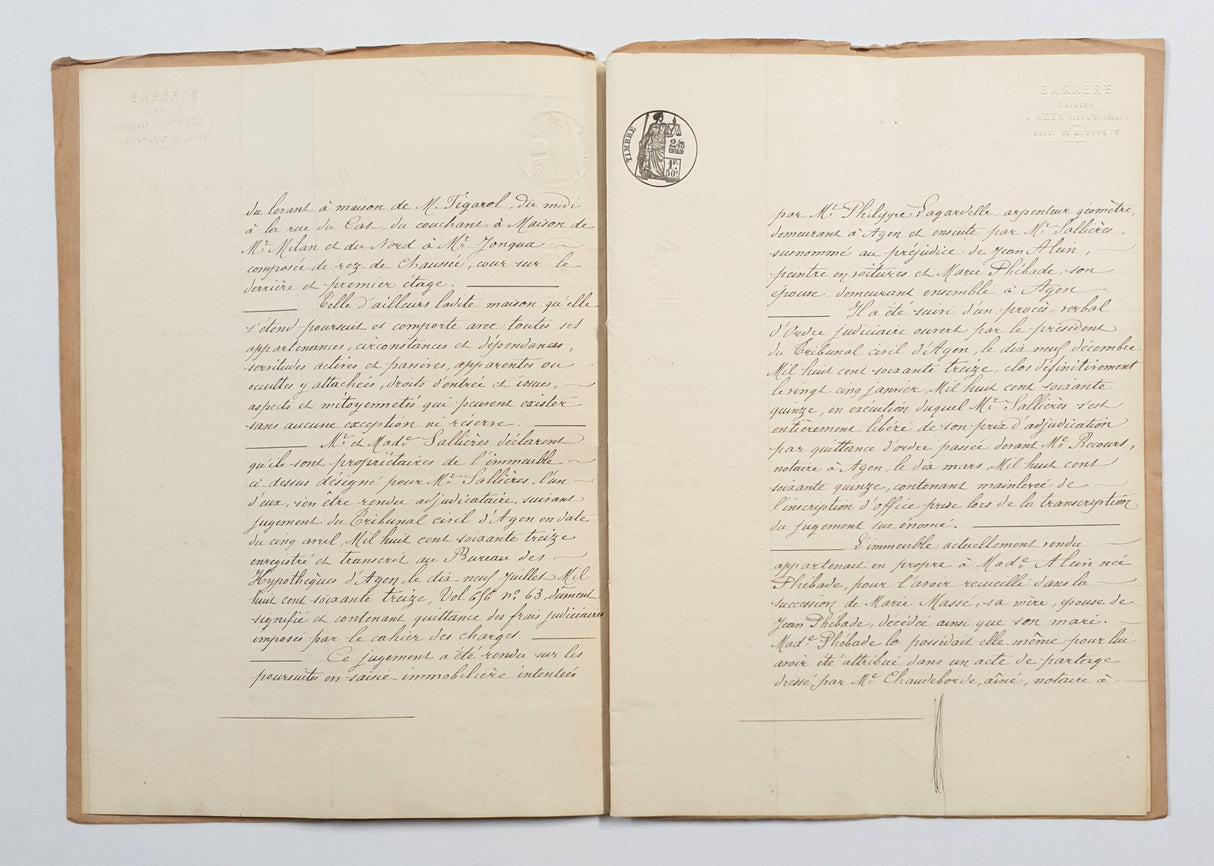 du levant à maison de M. Tégarol, du midi
à la rue du Cat, du couchant à Maison de
Mr. Milan et du Nord à Mr. Jonqua
composée de rez de Chaussée, cour sur le
derrière et premier étage.
Telle d'ailleurs ladite maison qu'elle
s'étend poursuit et comporte avec toutes ses
appartenances, circonstances et dépendances,
servitudes actives et passives, apparentes ou
occultes y attachées, droits d'entrée et issues,
aspects et mitoyennetés qui peuvent exister
sans aucune exception ni réserve.
Mr. et Made. Sallières déclarent
qu'ils sont propriétaires de l'immeuble
ci dessus désigné pour Mr. Sallières, l'un
d'eux, s'en être rendu adjudicataire, suivant
jugement du Tribunal civil d'Agen en date
du cinq avril Mil huit cent soixante treize
enregistré et transcrit au Bureau des
Hypothèques d'Agen, le dix-neuf Juillet Mil
huit cent soixante treize, Vol. 656 no. 63, dument
signifié et contenant quittance des frais judiciaires
imposés par le cahier des charges.
Ce jugement a été rendu sur les
poursuites en saisie immobilière intentées
TIMBRE
2/10
EN SUS
1F
50c
BARRÈRE
Notaire
À AGEN
SUCCr DE Me
par Mr. Philippe Lagardelle arpenteur géomètre,
demeurant à Agen et ensuite par Mr. Sallières,
susnommé au préjudice de Jean Alain,
peintre en voitures et Marie Phébade, son
épouse, demeurant ensemble à Agen
Il a été suivi d'un procès-verbal
d'Ordre judiciaire ouvert par le président
du Tribunal civil d'Agen, le dix neuf décembre
Mil huit cent soixante treize, clos définitivement
le vingt cinq janvier Mil huit cent soixante
quinze, en exécution duquel Mr. Sallières s'est
entièrement libéré de son prix d'adjudication
par quittance d'ordre passée devant Me. Recours,
notaire à Agen, le dix mars Mil huit cent
soixante quinze, contenant mainlevée de
l'inscription d'office prise lors de la transcription
du jugement sus énoncé.
L'immeuble actuellement vendu
appartenait en propre à Made. Alain née
Phébade, pour l'avoir recueilli dans la
succession de Marie Massé, sa mère, épouse de
Jean Phébade, décédée ainsi que son mari.
Made. Phébade le possédait elle même pour lui
avoir été attribué dans un acte de partage
dressé par Me. Chaudeborde, aîné, notaire à